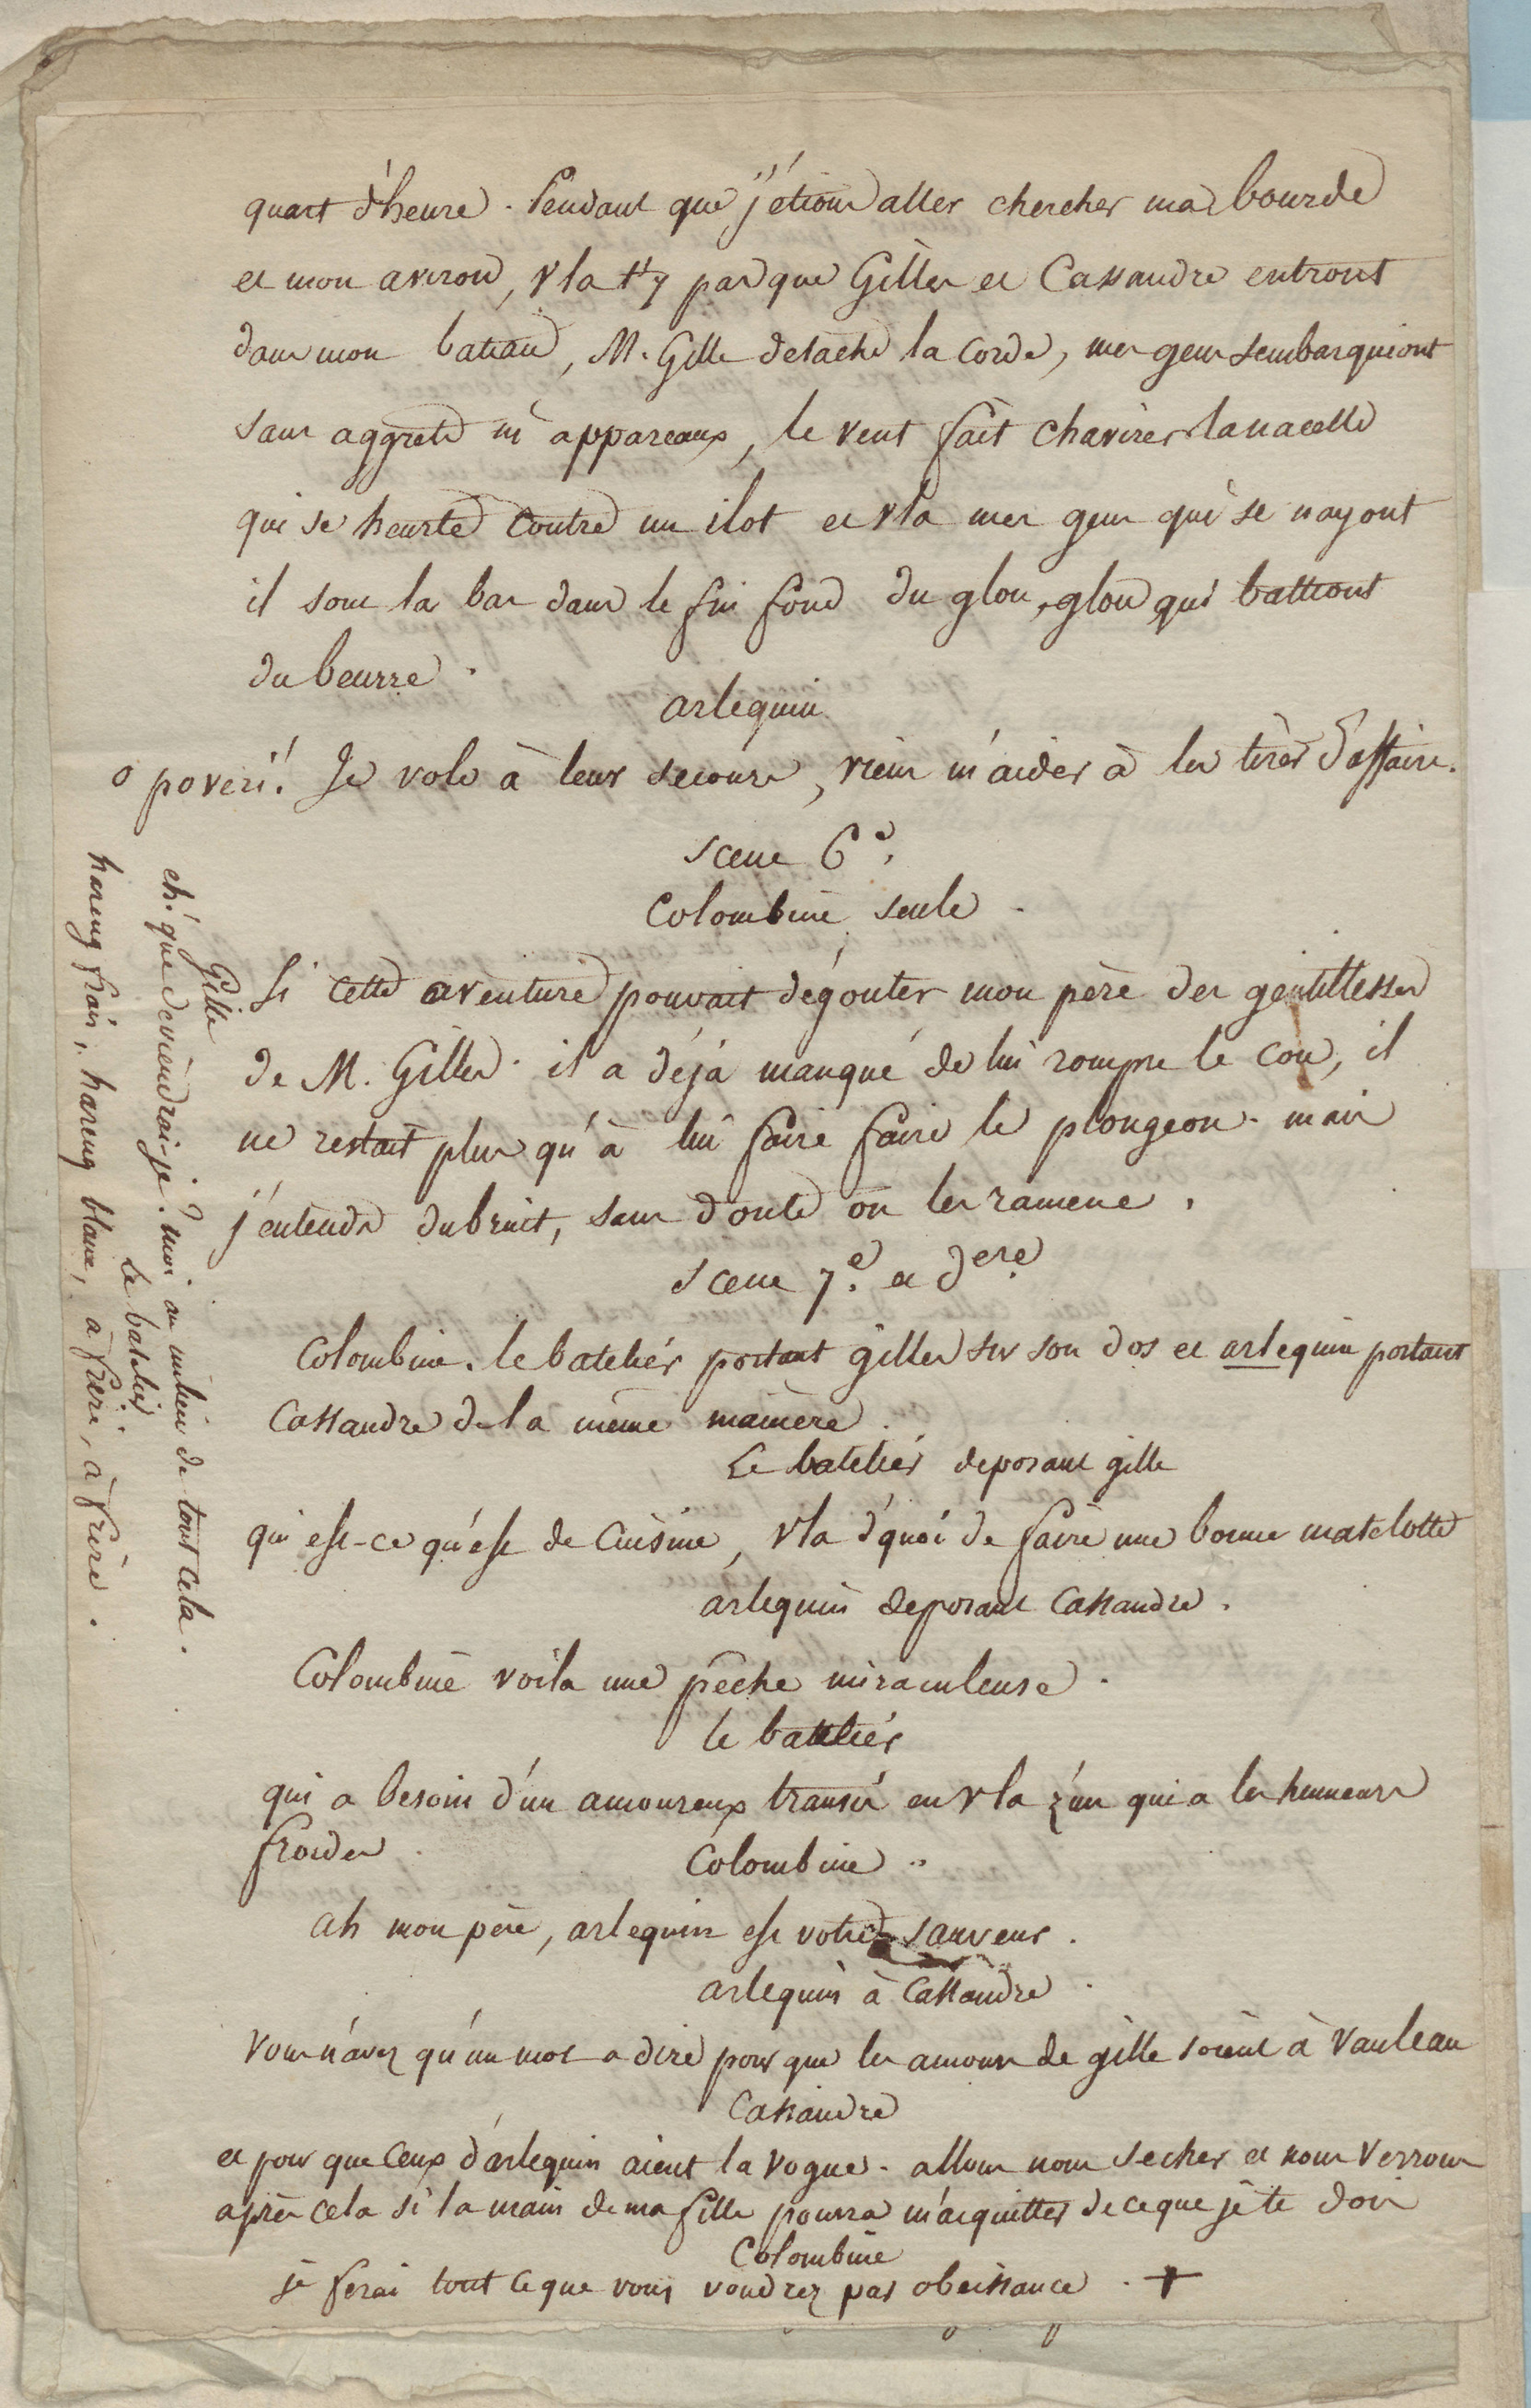 quart d'heure. Pendant que j'étions aller chercher ma bourde
et mon aviron, v'la t'y pas que Gilles et Cassandre entront
dans mon bateau, M. Gille detache la corde, mes gens sembarquiont
sans aggrets ni appareaux, le vent fait chavirer la nacelle
qui se heurte contre un ilot et v'la mes gens qui se nayont
il sont la bas dans le fin fond du glou, glou qui battiont
du beurre.
arlequin
o poveri! Je vole à leur secours, viens m'aider à les tirer d'affaire.
scene 6e.
Colombine seule.
Si cette aventure pouvait dégouter mon père des gentillesses
de M. Gilles. il a déjà manqué de lui rompre le cou, il
ne restait plus qu'à lui faire faire le plongeon. mais
j'entends du bruit, sans doute on les ramene.
scene 7e. et dere
Colombine. le batelier portant gilles sur son dos et arlequin portant
Cassandre de la même manière.
Le batelier deposant gille
qui est-ce qu'est de cuisine, v'la d'quoi de faire une bonne matelotte
arlequin deposant Cassandre.
Colombine voila une pêche miraculeuse.
le batelier
qui a besoin d'un amoureux transi en v'la z'un qui a les humeurs
froides.
Colombine..
ah mon père, arlequin est votre sauveur.
arlequin à Cassandre.
vous n'avez qu'un mot a dire pour que les amours de gille soient à vauleau
Cassandre
et pour que ceux d'arlequin aient la vogue. allons nous secher et nous verrons
après cela si la main de ma fille pourra m'acquitter de ce que je te dois
Colombine
je ferai tout ce que vous voudrez par obeissance. +
Gille
eh! que deviendrai-je? moi au milieu de tout cela.
Le batelier
hareng frais, hareng blanc, à frire, à frire.